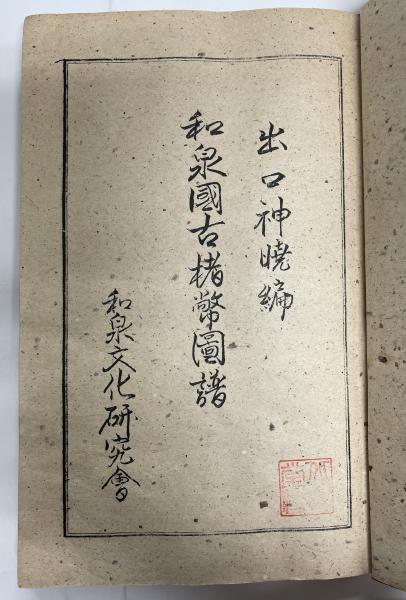 出口神暁編
和泉國古楮幣圖譜
和泉文化研究會